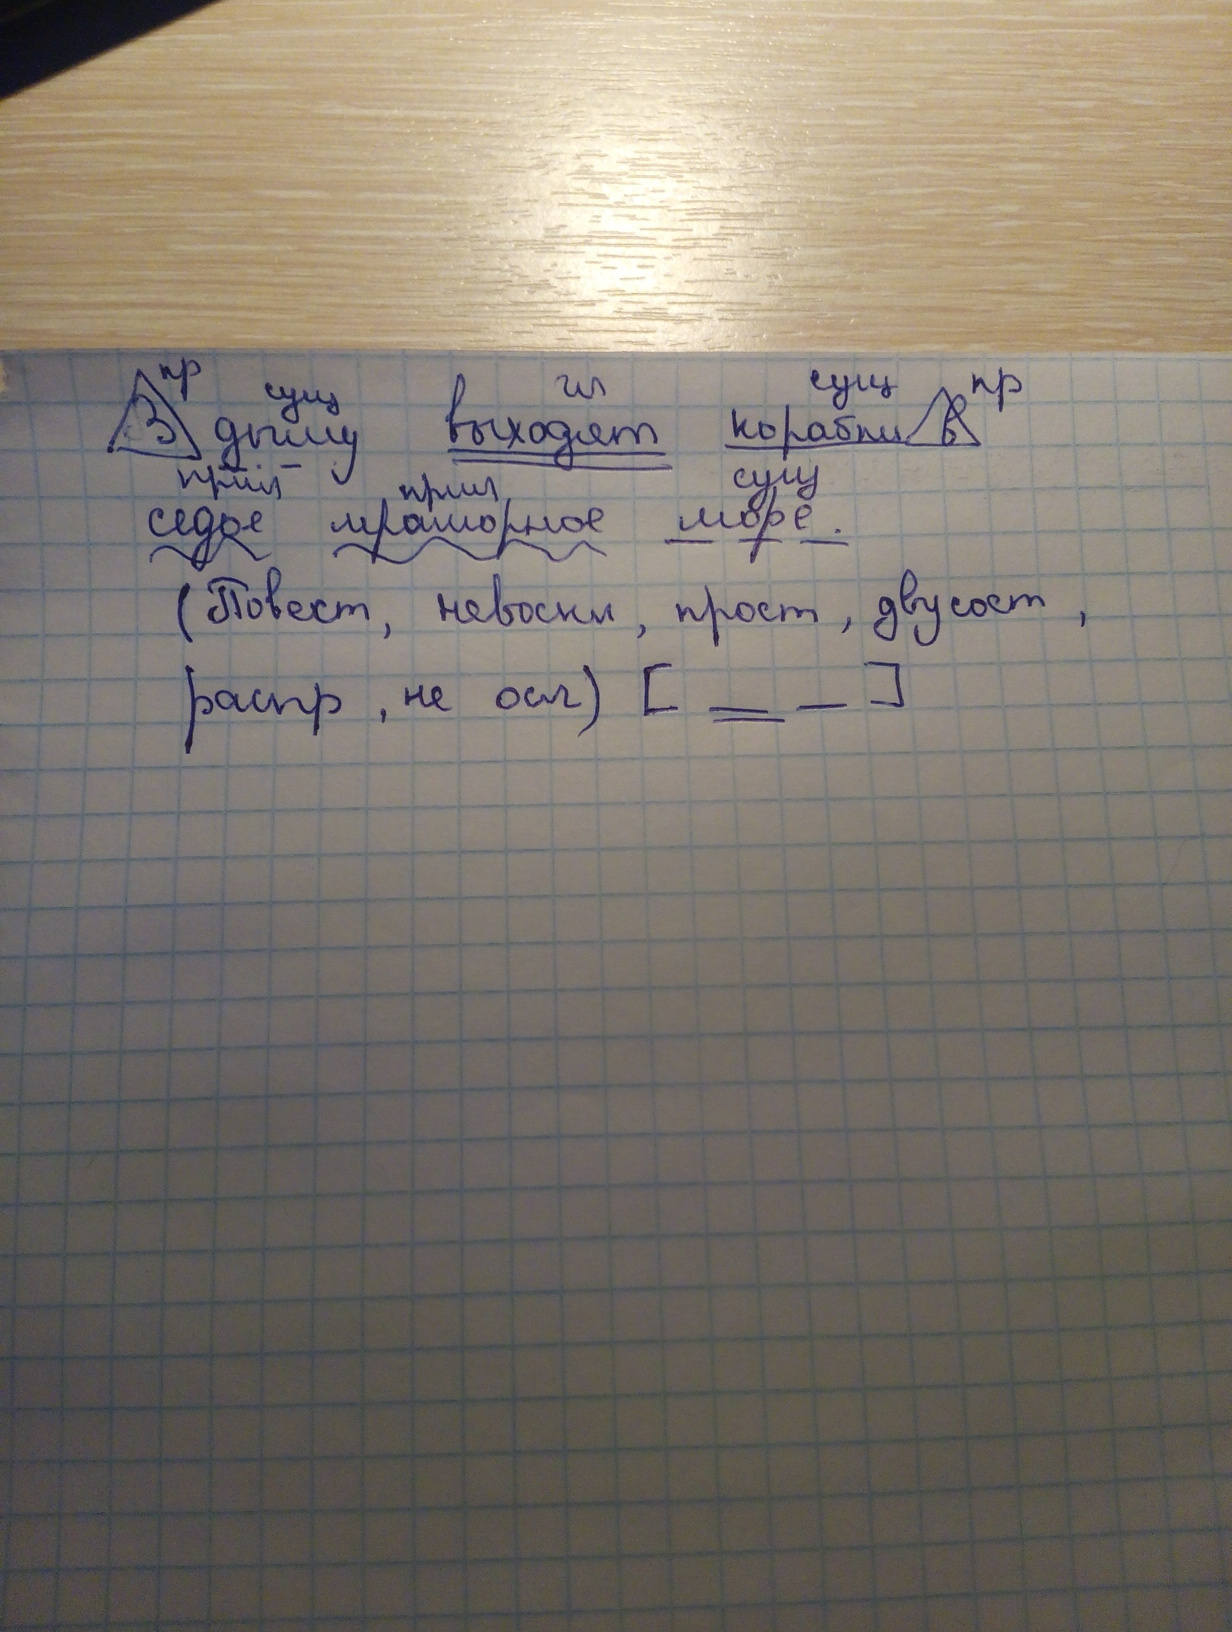 пр сущ гл сущ пр
З дыму выходят корабли в
прил прил сущ
седое мраморное море.
(Повест, невоскл, прост, двусост,
распр, не осл) [ ]